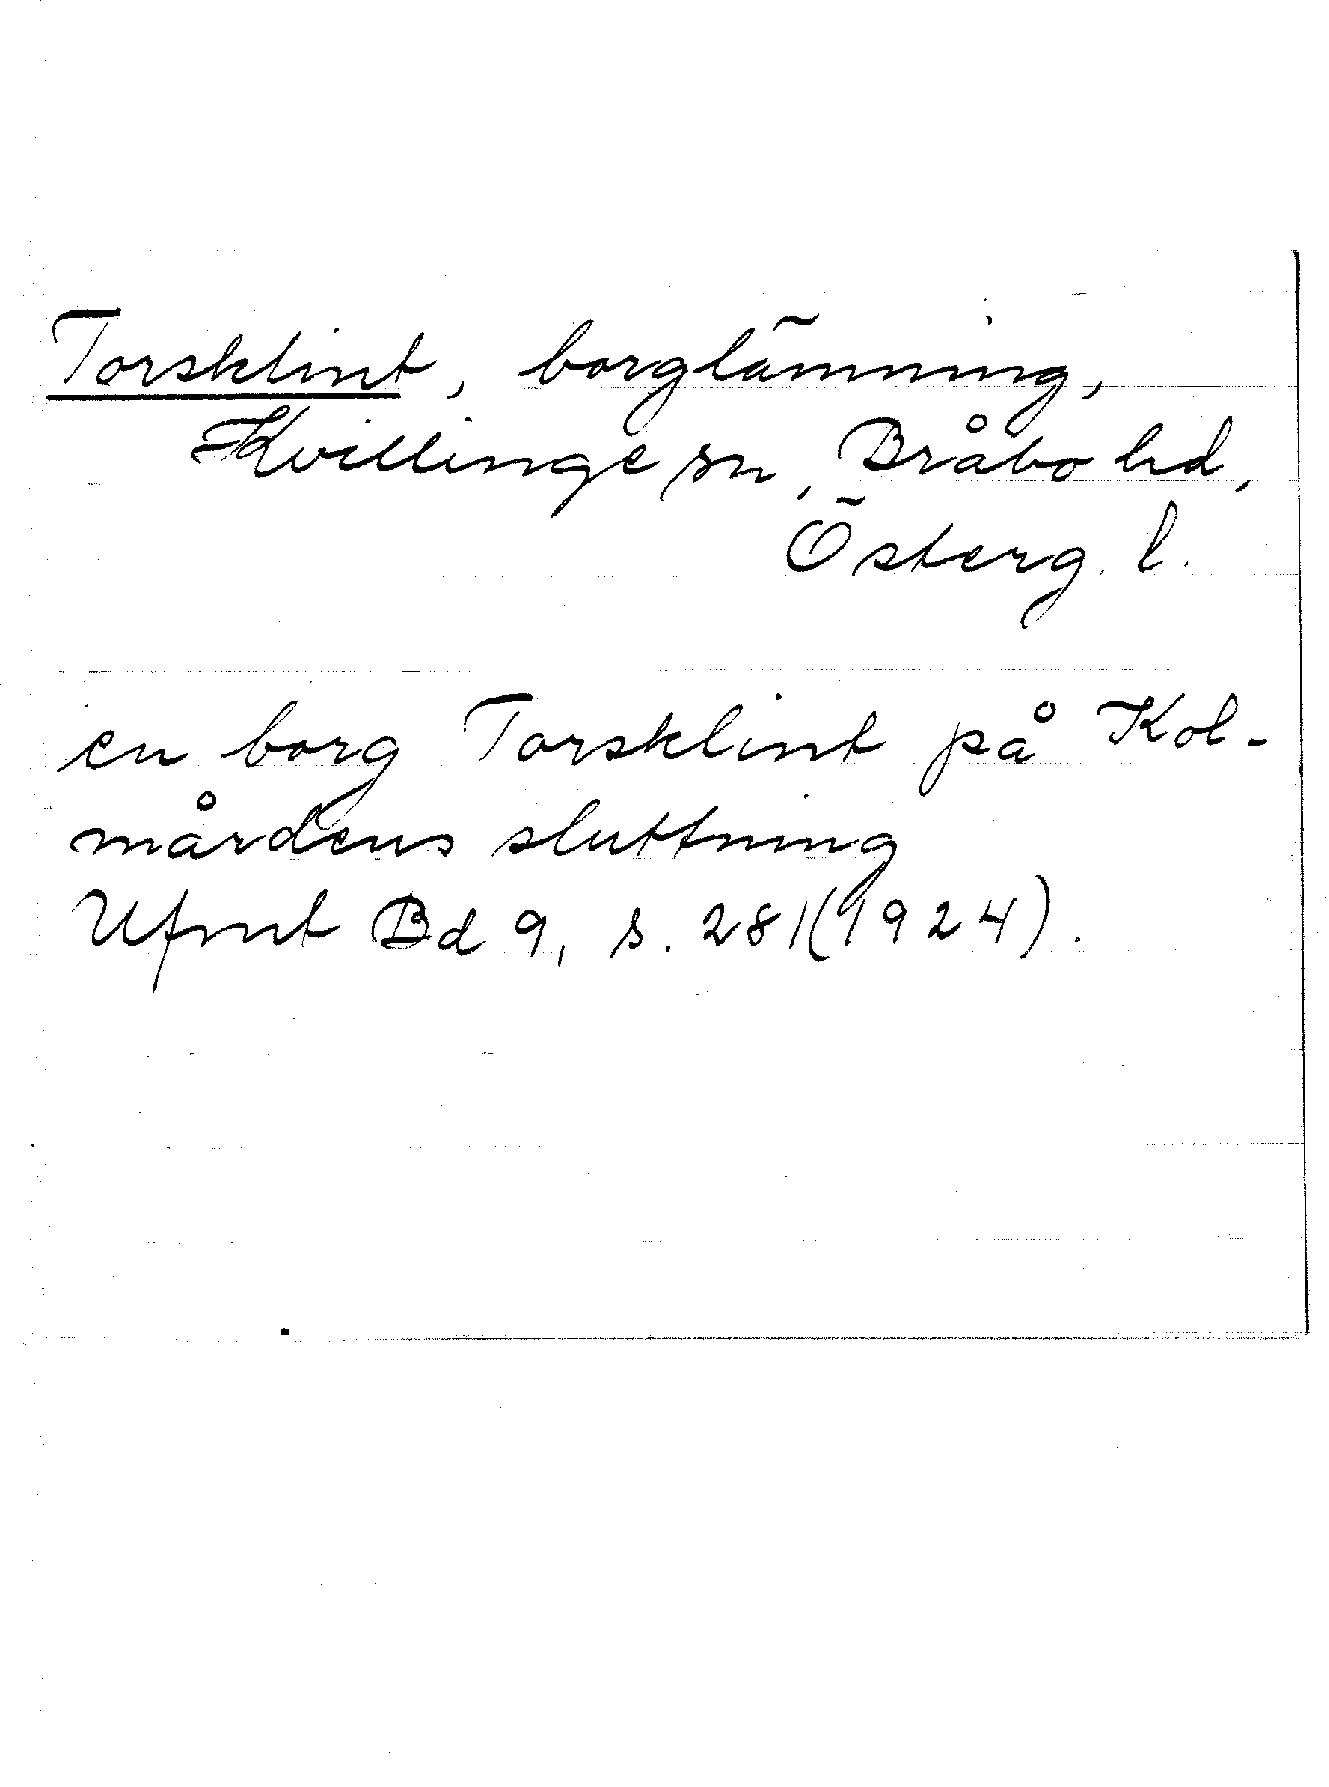 Torsklint, borglämning,
Kvillinge sn, Bråbo hd,
Österg. l.
en borg Torsklint på Kol-
mårdens sluttning
Ufmt Bd 9, s. 281 (1924).